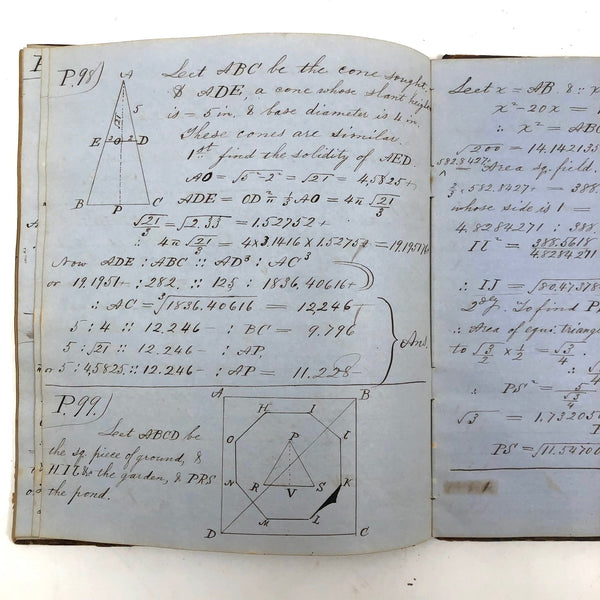 P. 98)
Leet ABC be the cone sought,
& ADE, a cone whose slant height
is = 5 in. & base diameter is 4 in.
These cones are similar.
1st find the solidity of AED.
AO = √5²-2² = √21 = 4,5825+
ADE = OD²π ⅓AO = 4π √21/3
√21/3 = √2.33 = 1.52752+
∴ 4π √21/3 = 4×3.1416×1.52752 = 19.195176
Now ADE : ABC :: AD³ : AC³
or 19.1951+ : 282. :: 125 : 1836.40616+
∴ AC = ³√1836.40616 = 12,246-
5 : 4 :: 12.246- : BC = 9.796
5 : √21 :: 12.246- : AP.
or 5 : 4,5825 :: 12.246- : AP = 11.228-
Ans.
A
5
E 2 O 2 D
B P C
P. 99.)
Leet ABCD be
the sq. piece of ground, &
the garden, & PRS
the pond.
A B
H I
O P
N R V S K
M L
D C
Leet x = AB. & :: x
x²-20x = 1
∴ x² = ABC
√200 = 14.142135
582.8427+
= Area sq. field.
⅔ × 582.8427+ = 388.
whose side is 1 =
4,8284271 : 388.
IL² = 388.5618/4.8284271
∴ IJ = √80.47378
2dly. To find P
∴ Area of equi. triangle
to √3/2 × ½ = √3/4
∴ PS² = 5/√3/4
√3 = 1.73205
PS = √11.54700